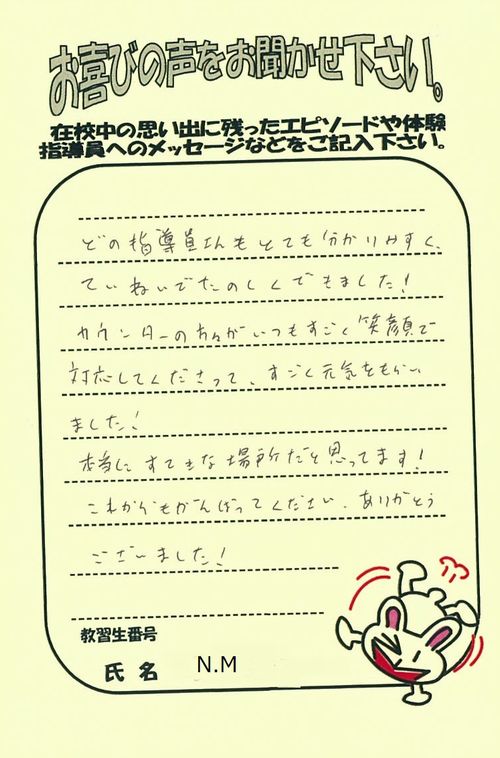 お喜びの声をお聞かせ下さい。
在校中の思い出に残ったエピソードや体験
指導員へのメッセージなどをご記入下さい。
どの指導員さんもとても分かりやすく、
ていねいでたのしくできました!
カウンターの方々がいつもすごく笑顔で
対応してくださって、すごく元気をもらい
ました!
本当にすてきな場所だと思ってます!
これからもがんばってください。ありがとう
ございました!
教習生番号
氏名 N.M